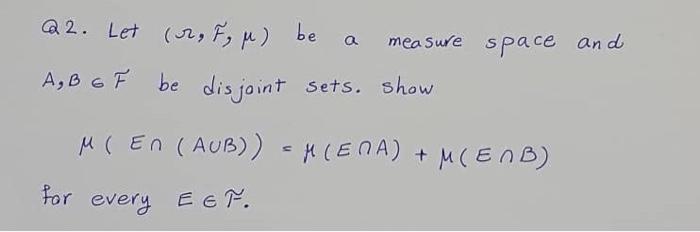 Q2. Let (Ω, F, μ) be a measure space and
A, B ∈ F be disjoint sets. show
μ ( E ∩ (A∪B)) = μ(E∩A) + μ(E∩B)
for every E ∈ F.